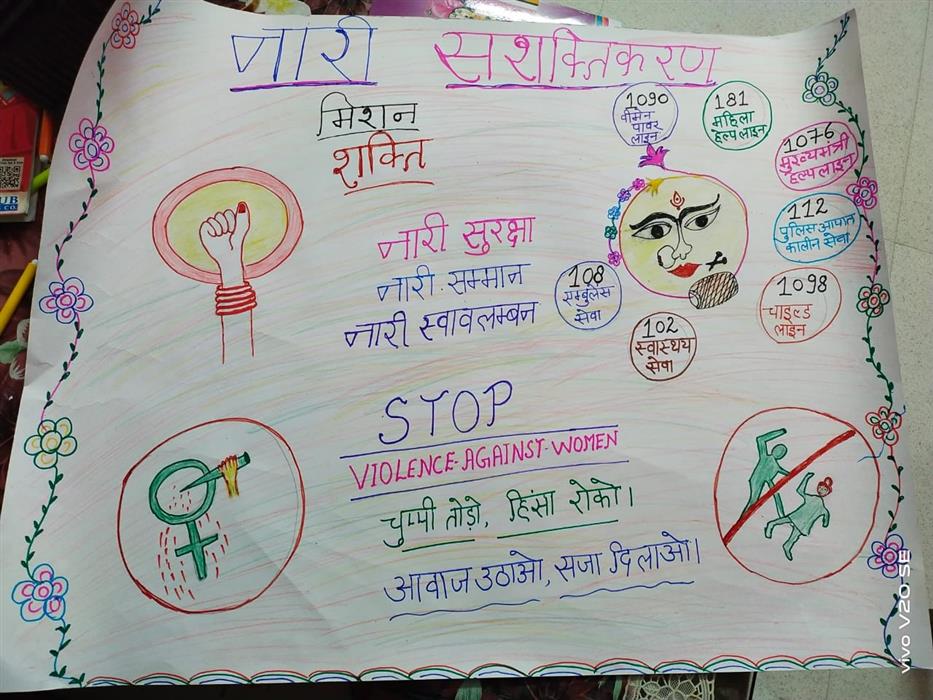 नारी सशक्तिकरण
मिशन
शक्ति
1090
वीमेन
पावर
लाइन
181
महिला
हेल्पलाइन
1076
मुख्यमंत्री
हेल्पलाइन
112
पुलिस आपात
कालीन सेवा
1098
चाइल्ड
लाइन
102
स्वास्थय
सेवा
108
एम्बुलेंस
सेवा
नारी सुरक्षा
नारी सम्मान
नारी स्वावलम्बन
STOP
VIOLENCE-AGAINST-WOMEN
चुप्पी तोड़ो, हिंसा रोको।
आवाज उठाओ, सजा दिलाओ।
vivo V20 SE